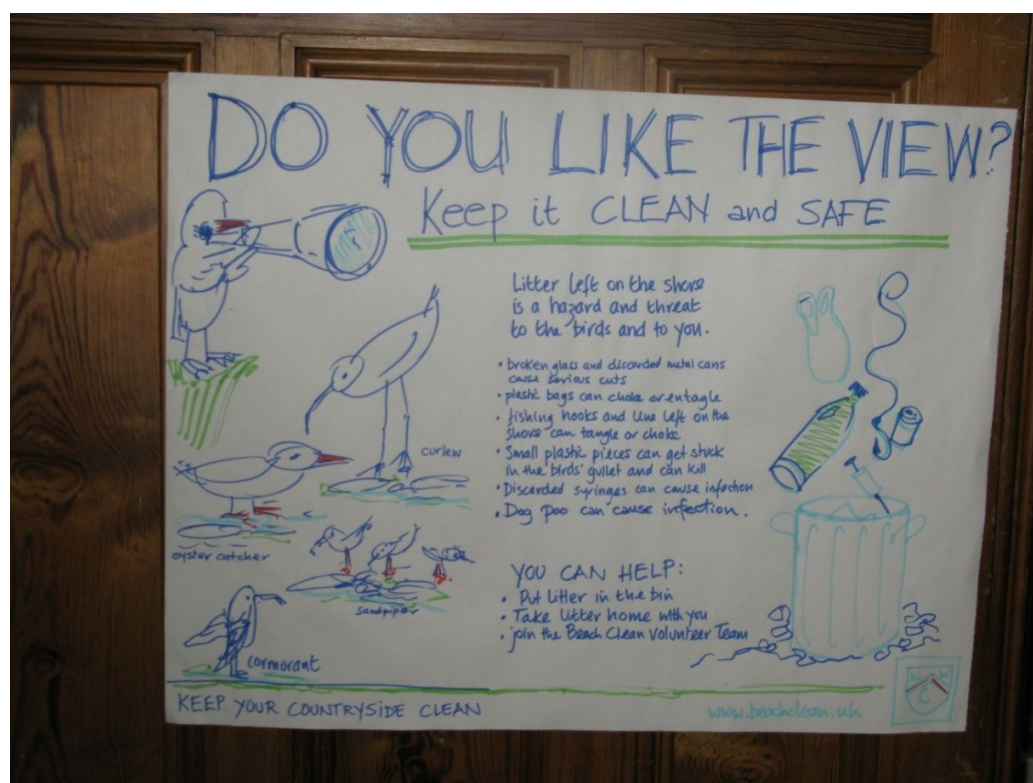 DO YOU LIKE THE VIEW?
Keep it CLEAN and SAFE
Litter left on the shore
is a hazard and threat
to the birds and to you.
• broken glass and discarded metal cans
cause serious cuts
• plastic bags can choke or entagle
• fishing hooks and line left on the
shore can tangle or choke
• Small plastic pieces can get stuck
in the birds' gullet and can kill
• Discarded syringes can cause infection
• Dog poo can cause infection.
curlew
oyster catcher
sandpiper
cormorant
YOU CAN HELP:
• Put Litter in the bin
• Take litter home with you
• join the Beach Clean Volunteer Team
KEEP YOUR COUNTRYSIDE CLEAN
www.beachclean.uk